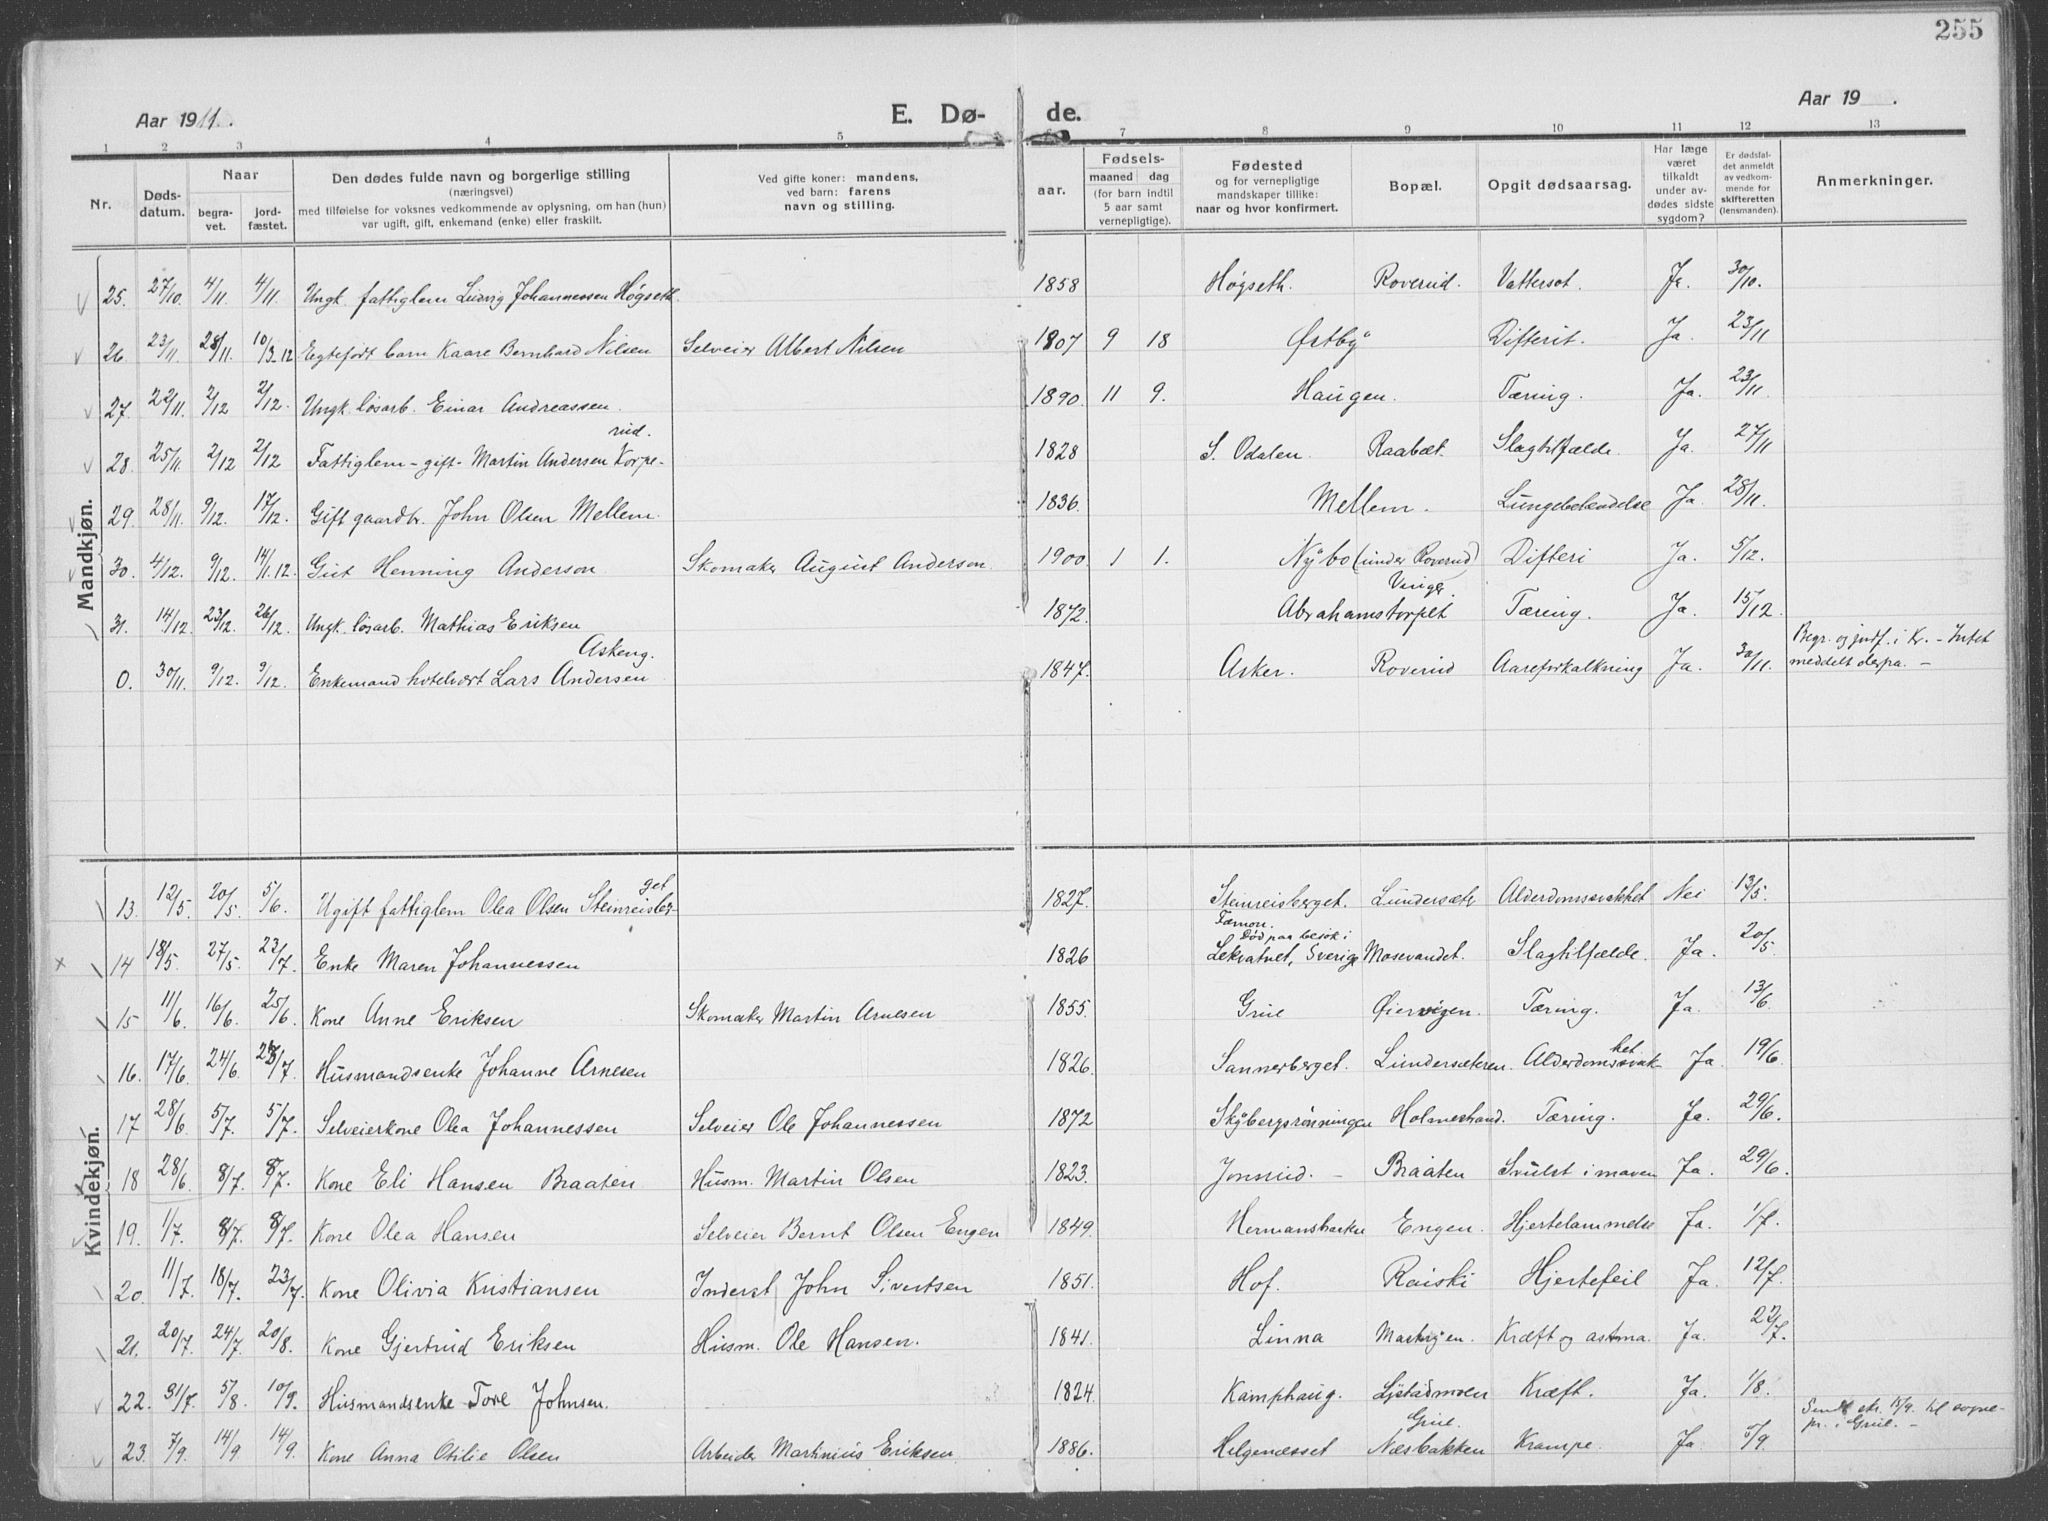 255
Aar 1911. E. Dø- de. Aar 19 .
1 2 3 4 5 7 8 9 10 11 12 13
Nr. Døds-datum. Naar begra-vet. jord-fæstet. Den dødes fulde navn og borgerlige stilling (næringsvei) med tilføielse for voksnes vedkommende av oplysning, om han (hun) var ugift, gift, enkemand (enke) eller fraskilt. Ved gifte koner: mandens, ved barn: farens navn og stilling. aar. Fødsels- maaned dag (for barn indtil 5 aar samt vernepligtige). Fødested og for vernepligtige mandskaper tillike: naar og hvor konfirmert. Bopæl. Opgit dødsaarsag. Har læge været tilkaldt under av-dødes sidste sygdom? Er dødsfal-det anmeldt av vedkom-mende for skifteretten (lensmanden). Anmerkninger.
Mandkjøn.
25. 27/10. 4/11. 4/11. Ungk. fattiglem Ludvig Johannessen Høgseth. 1858 Høgseth. Roverud. Vattersot. Ja. 30/10.
26. 23/11. 28/11. 10/3.12 Egtefødt barn Kaare Bernhard Nilsen Selveier Albert Nilsen 1907 9 18 Østby Difterit. Ja. 23/11
27. 22/11. 2/12 2/12. Ungk. løsarb. Einar Andreassen. 1890. 11 9. Haugen. Tæring. Ja. 23/11.
28. 25/11. 2/12 2/12 Fattiglem - gift - Martin Andersen Korpe-rud. 1828 S. Odalen. Raabæt. Slagtilfælde. Ja. 27/11
29. 28/11. 9/12. 17/12. Gift gaardbr. John Olsen Mellem. 1836. Mellem. Lungebetændelse Ja. 28/11.
30. 4/12. 9/12. 14/1.12. Gut Henning Anderson. Skomaker August Anderson. 1900 1 1. Nybo (under Roverud) Difteri Ja. 5/12.
31. 14/12. 23/12. 26/12. Ungk. løsarb. Mathias Eriksen 1872. Vinger. Abrahamstorpet Tæring. Ja. 15/12.
0. 30/11. 9/12. 9/12. Enkemand hotelvært Lars Andersen Askeng. 1847. Asker. Roverud Aareforkalkning Ja. 30/11. Begr. og jordf. i Kr. - Intet meddelt derfra. -
Kvindekjøn.
13. 12/5. 20/5. 5/6. Ugift fattiglem Olea Olsen Steinreisber-get 1827. Steinreisberget. Lundersæter Alderdomssvakhet Nei 13/5.
14 18/5. 27/5. 23/7. Enke Maren Johannessen 1826 Død paa besøk i Lekvatnet, Sverige Mosevandet. Slagtilfælde. Ja. 20/5.
15 11/6. 16/6. 25/6. Kone Anne Eriksen Skomaker Martin Arnesen 1855. Grue Øiermoen. Tæring. Ja. 13/6.
16. 17/6. 24/6. 23/7. Husmandsenke Johanne Arnesen 1826. Sannerberget. Lundersæteren. Alderdomssvak-het Ja. 19/6.
17 28/6. 5/7. 5/7. Selveierkone Olea Johannessen Selveier Ole Johannessen 1872 Skybergsrønningen Holmestrand. Tæring. Ja. 29/6.
18 28/6. 8/7. 8/7. Kone Eli Hansen Braaten Husm. Martin Olsen 1823. Jonsrud. - Braaten Svulst i maven Ja. 29/6.
19. 1/7. 8/7. 8/7. Kone Olea Hansen Selveier Bernt Olsen Engen 1849. Hermansbakken Engen. Hjertelammelse Ja. 1/7.
20. 11/7. 18/7. 23/7. Kone Olivia Kristiansen Inderst John Sivertsen 1851. Hof. Roiski Hjertefeil Ja. 12/7.
21. 20/7. 24/7. 20/8. Kone Gjertrud Eriksen Husm. Ole Hansen. 1841. Linna Kræft og astma. Ja.
22. 31/7. 5/8. 10/9. Husmandsenke Tore Johnsen. 1824. Kamphaug. Lystadmoen Kræft. Ja. 1/8.
23. 7/9. 14/9. 14/9. Kone Anna Otilie Olsen Arbeider Martinius Eriksen. 1886. Helgenæsset Grue. Næsbakken Krampe. Ja. Sendt 15/9. til sogne-pr. i Grue. -